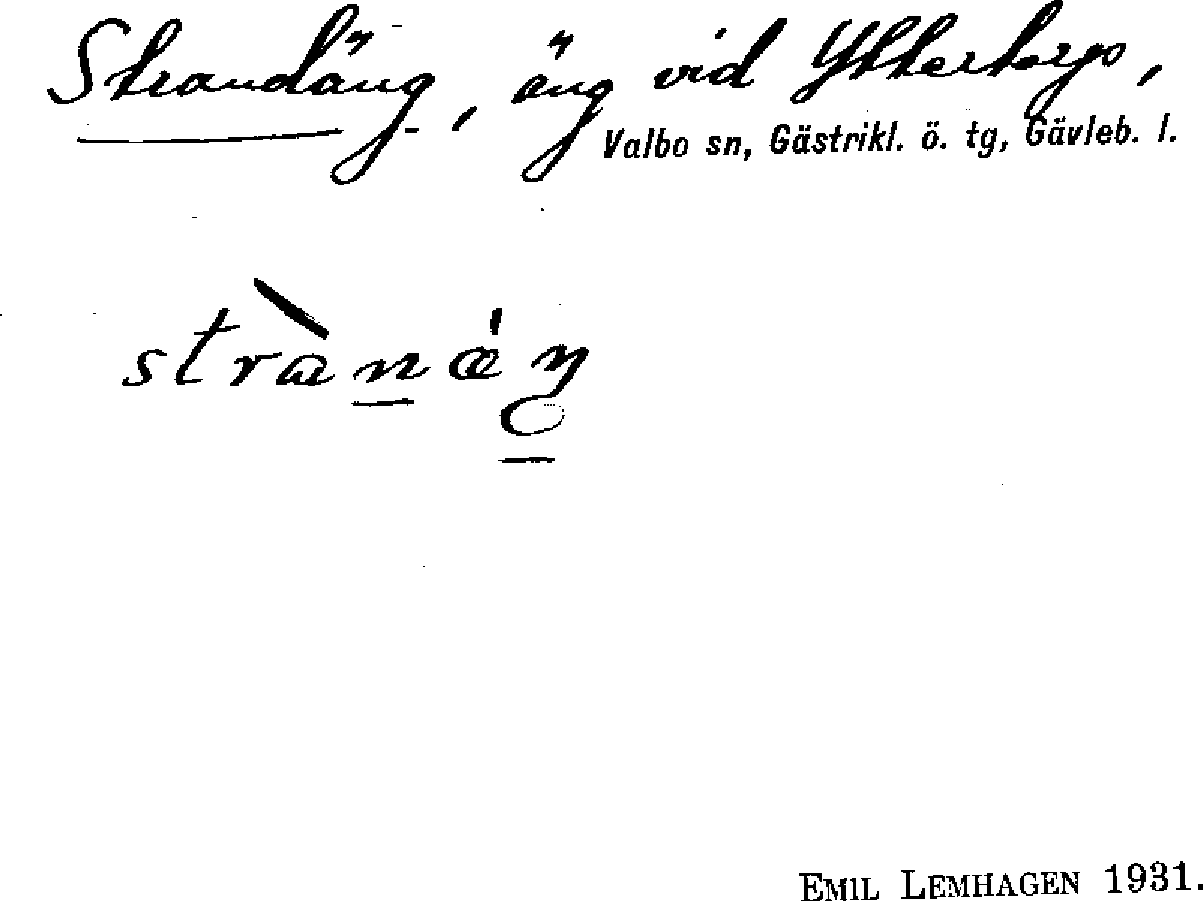 Strandäng, äng vid Ytterharjo,
Valbo sn, Gästrikl. ö. tg, Gävleb. l.
strànǽŋ
EMIL LEMHAGEN 1931.